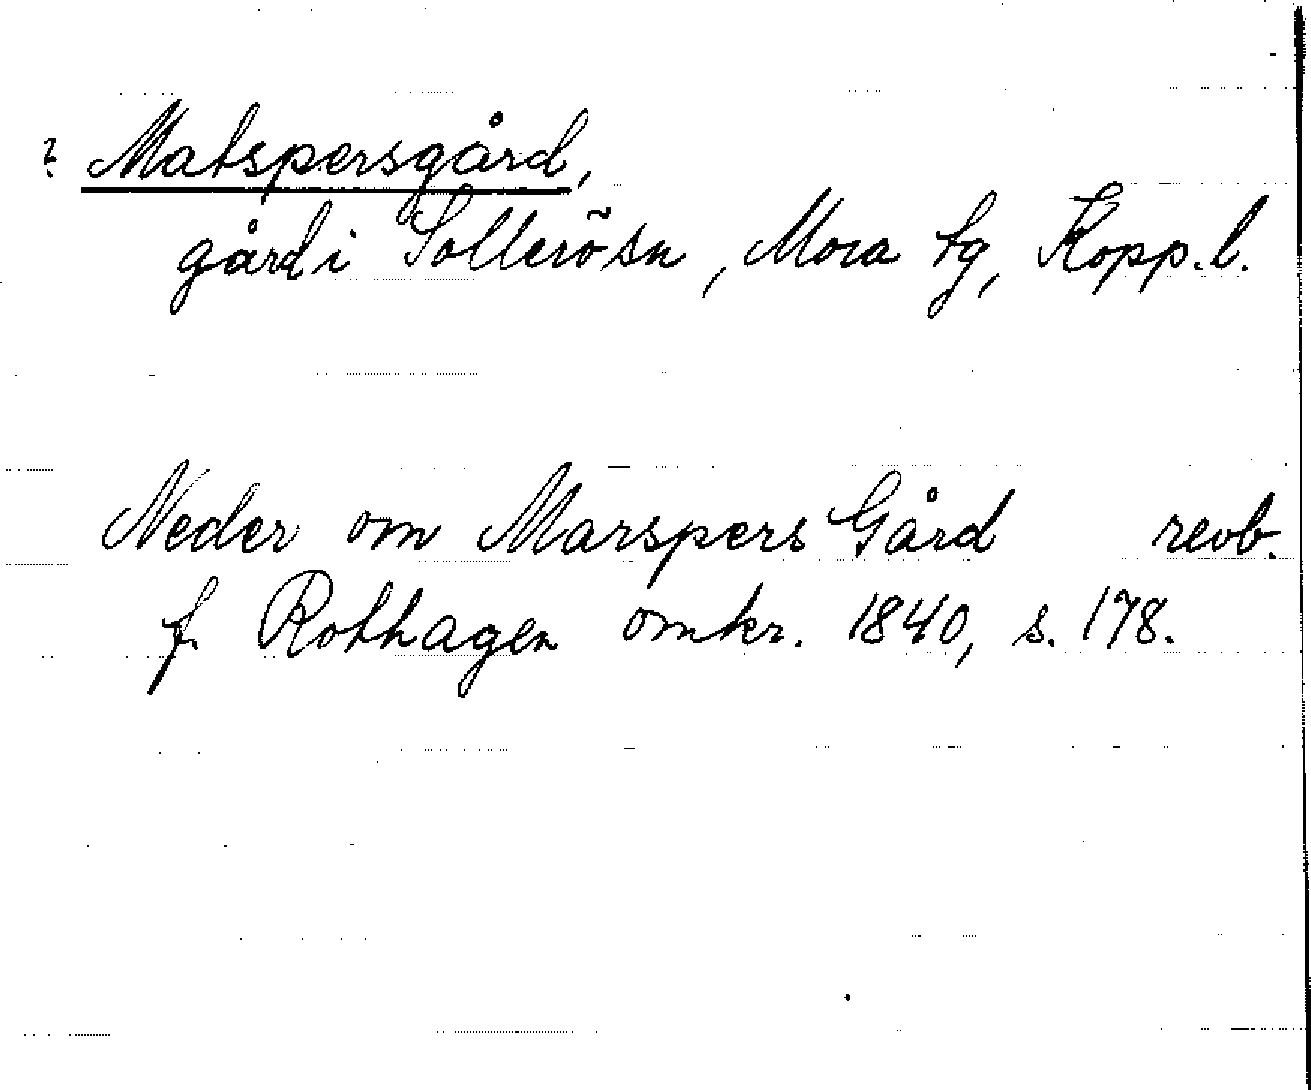 ? Matspersgård,
gård i Sollerö sn, Mora tg, Kopp. l.
Neder om Marspers Gård revb.
f. Rothagen omkr. 1840, s. 178.